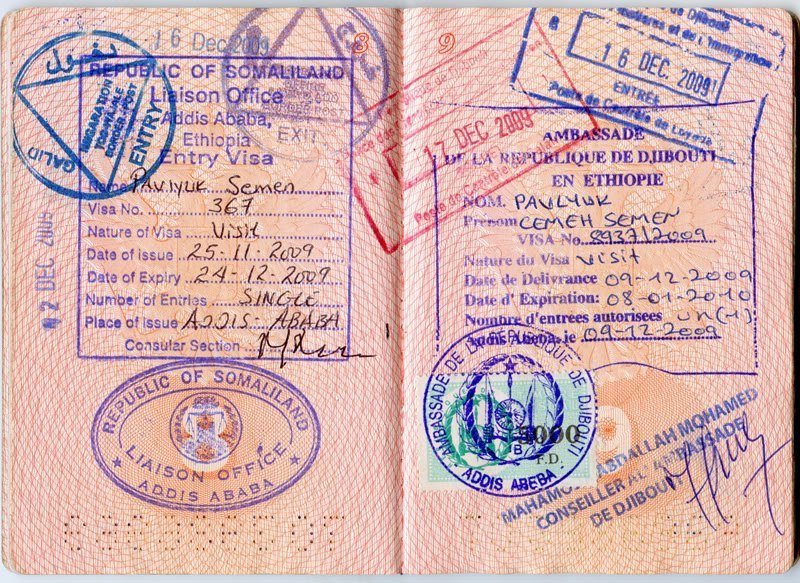 16 Dec 2009
8
EXIT
ENTRY
GALID
REPUBLIC OF SOMALILAND
Liaison Office
Addis Ababa,
Ethiopia
Entry Visa
Name Pavlyuk Semen
Visa No. 367
Nature of Visa Visit
Date of Issue 25-11-2009
Date of Expiry 24-12-2009
Number of Entries SINGLE
Place of Issue ADDIS-ABABA
Consular Section
2 DEC 2009
REPUBLIC OF SOMALILAND
LIAISON OFFICE
ADDIS ABABA
9
16 DEC. 2009
ENTRÉE
Poste de Contrôle de
17 DEC 2009
Poste de Contrôle
AMBASSADE
DE LA REPUBLIQUE DE DJIBOUTI
EN ETHIOPIE
NOM. PAVLYUK
Prenom CEMEH SEMEN
VISA No. 8937/2009
Nature du Visa visit
Date de Delivrance 09-12-2009
Date d'Expiration: 08-01-2010
Nombre d'entrees autorisees un(1)
Addis Abeba, le 09-12-2009
AMBASSADE DE LA REPUBLIQUE DE DJIBOUTI
ADDIS ABEBA
5000
F.D.
ABDALLAH MOHAMED
CONSEILLER AL AMBASSADE
DE DJIBOUTI